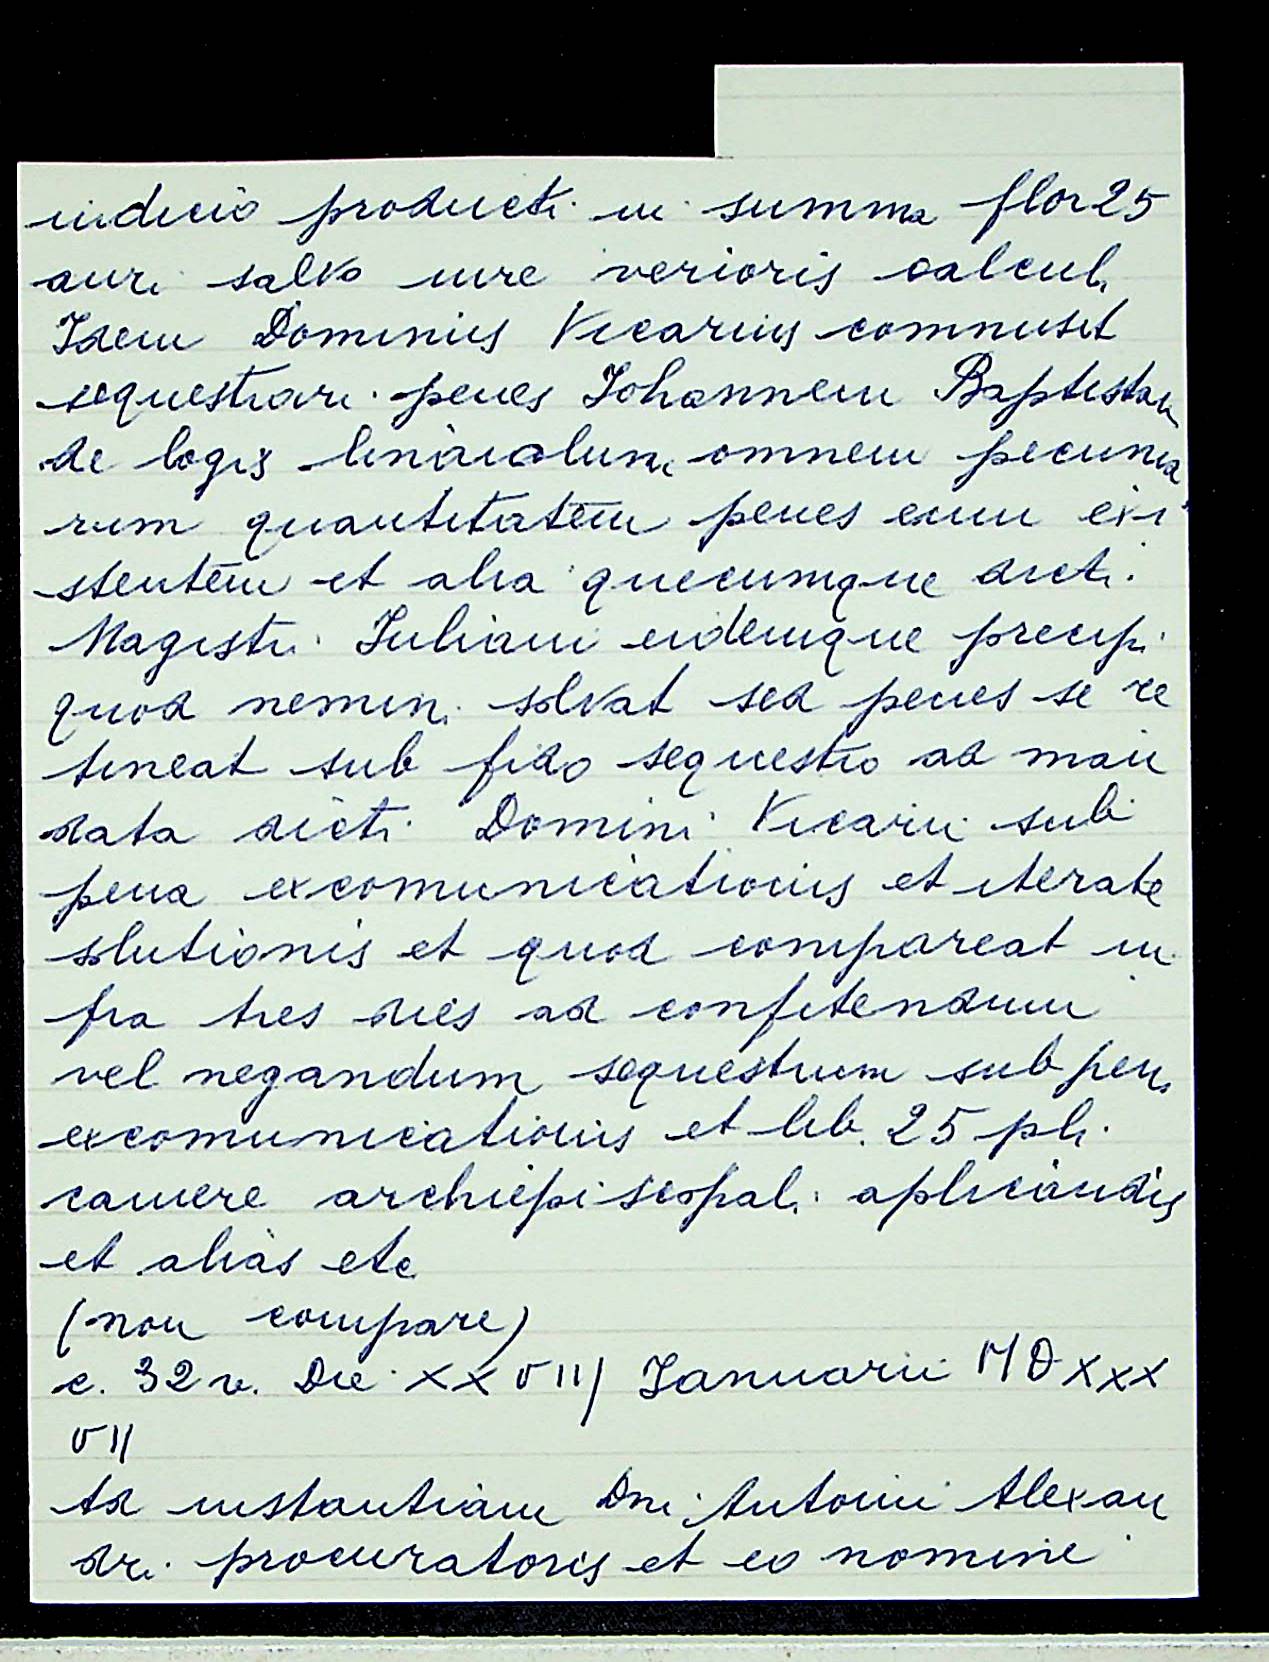 iudicio producti in summa flor 25
auri salvo iure verioris calculi
Idem Dominus Vicarius commisit
sequestrari penes Johannem Baptistam
de logis linaiolum omnem pecunia
rum quantitatem penes eum exi
stentem et alia quecumque dicti
Magistri Juliani eidemque precipi
quod nemini solvat sed penes se re
tineat sub fido sequestro ad man
data dicti Domini Vicarii sub
pena excomunicationis et iterate
solutionis et quod compareat in
fra tres dies ad confitendum
vel negandum sequestrum sub pena
excomunicationis et lib. 25 pli.
camere archiepiscopali aplicandis
et alias etc
(non compare)
c. 32 v. Die XXVIIJ Januarii MDXXX
VII
Ad instantiam Dni Antonii Alexan
dri procuratoris et eo nomine